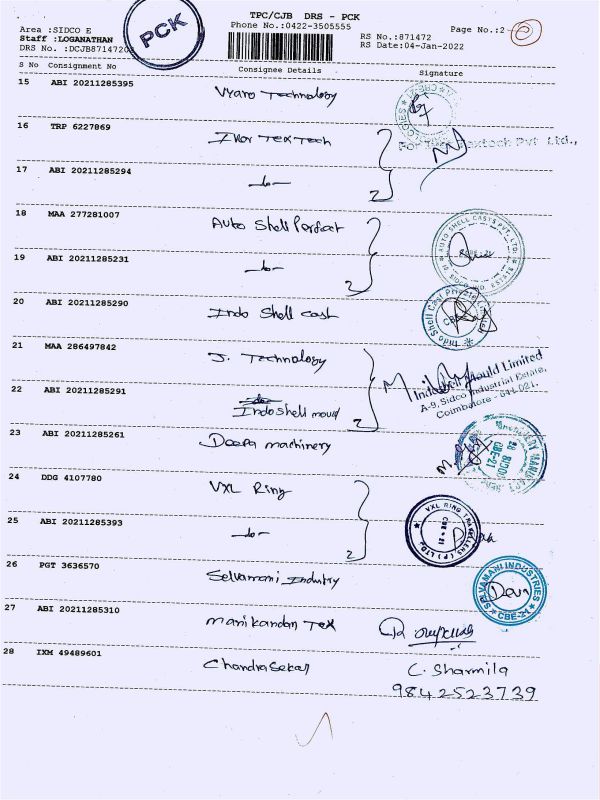 TPC/CJB DRS - PCK
Area :SIDCO E
Phone No.:0422-3505555
Page No.:2
Staff :LOGANATHAN
RS No.:871472
DRS No. :DCJB8714720
RS Date:04-Jan-2022
PCK
S No Consignment No Consignee Details Signature
15 ABI 20211285395 Vyaro Technology
16 TRP 6227869 Ikor Tex Tech
For Textech Pvt Ltd.,
17 ABI 20211285294 -do-
2
18 MAA 277281007 Auto Shell Perfect
AUTO SHELL CASTS PVT. LTD.
19 ABI 20211285231 -do-
2
20 ABI 20211285290 Indo Shell Cast
Indo Shell Cast Private Limited
CBE
21 MAA 286497842 J. Technology
Indo Shell Mould Limited
A-9, Sidco Industrial Estate,
Coimbatore - 641 021.
22 ABI 20211285291 Indoshell mould
2
23 ABI 20211285261 Deepa machinery
CBE-21
24 DDG 4107780 VXL Ring
VXL RING TRAVELLERS (P) LTD.
CBE - 21
25 ABI 20211285393 -do-
2
26 PGT 3636570 Selvamani Industry
SELVAMANI INDUSTRIES
CBE-21
27 ABI 20211285310 Manikandan Tex
28 IXM 49489601 Chandrasekar C. Sharmila
9842523739